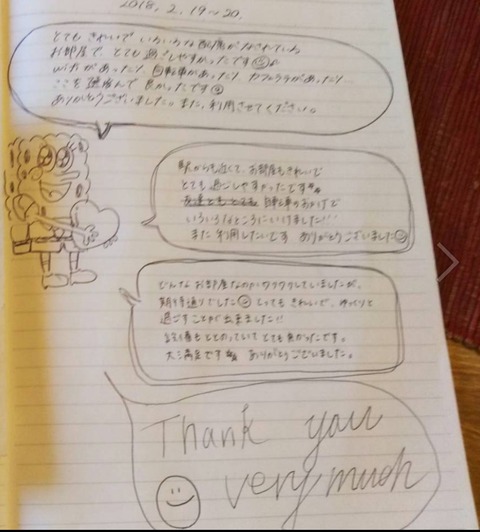 2018. 2. 19〜20.
とても きれいで いろいろな 配慮がなされている
お部屋で、とても 過ごしやすかったです☺♪
wifiがあったり、自転車があったり、カフェラテがあったり…
ここを 選んで 良かったです☺
ありがとうございました!! また、利用させてください。
駅からも近くて、お部屋もきれいで
とても 過ごしやすかったです
自転車のおかげで
いろいろなところにいけました!!!
また 利用したいです ありがとうございました☺
どんな お部屋なのかワクワクしていましたが、
期待通りでした☺ とっても きれいで、ゆっくりと
過ごすことが 出来ました!!
設備も ととのっていて とても 良かったです。
大満足です ありがとうございました。
Thank you
very much